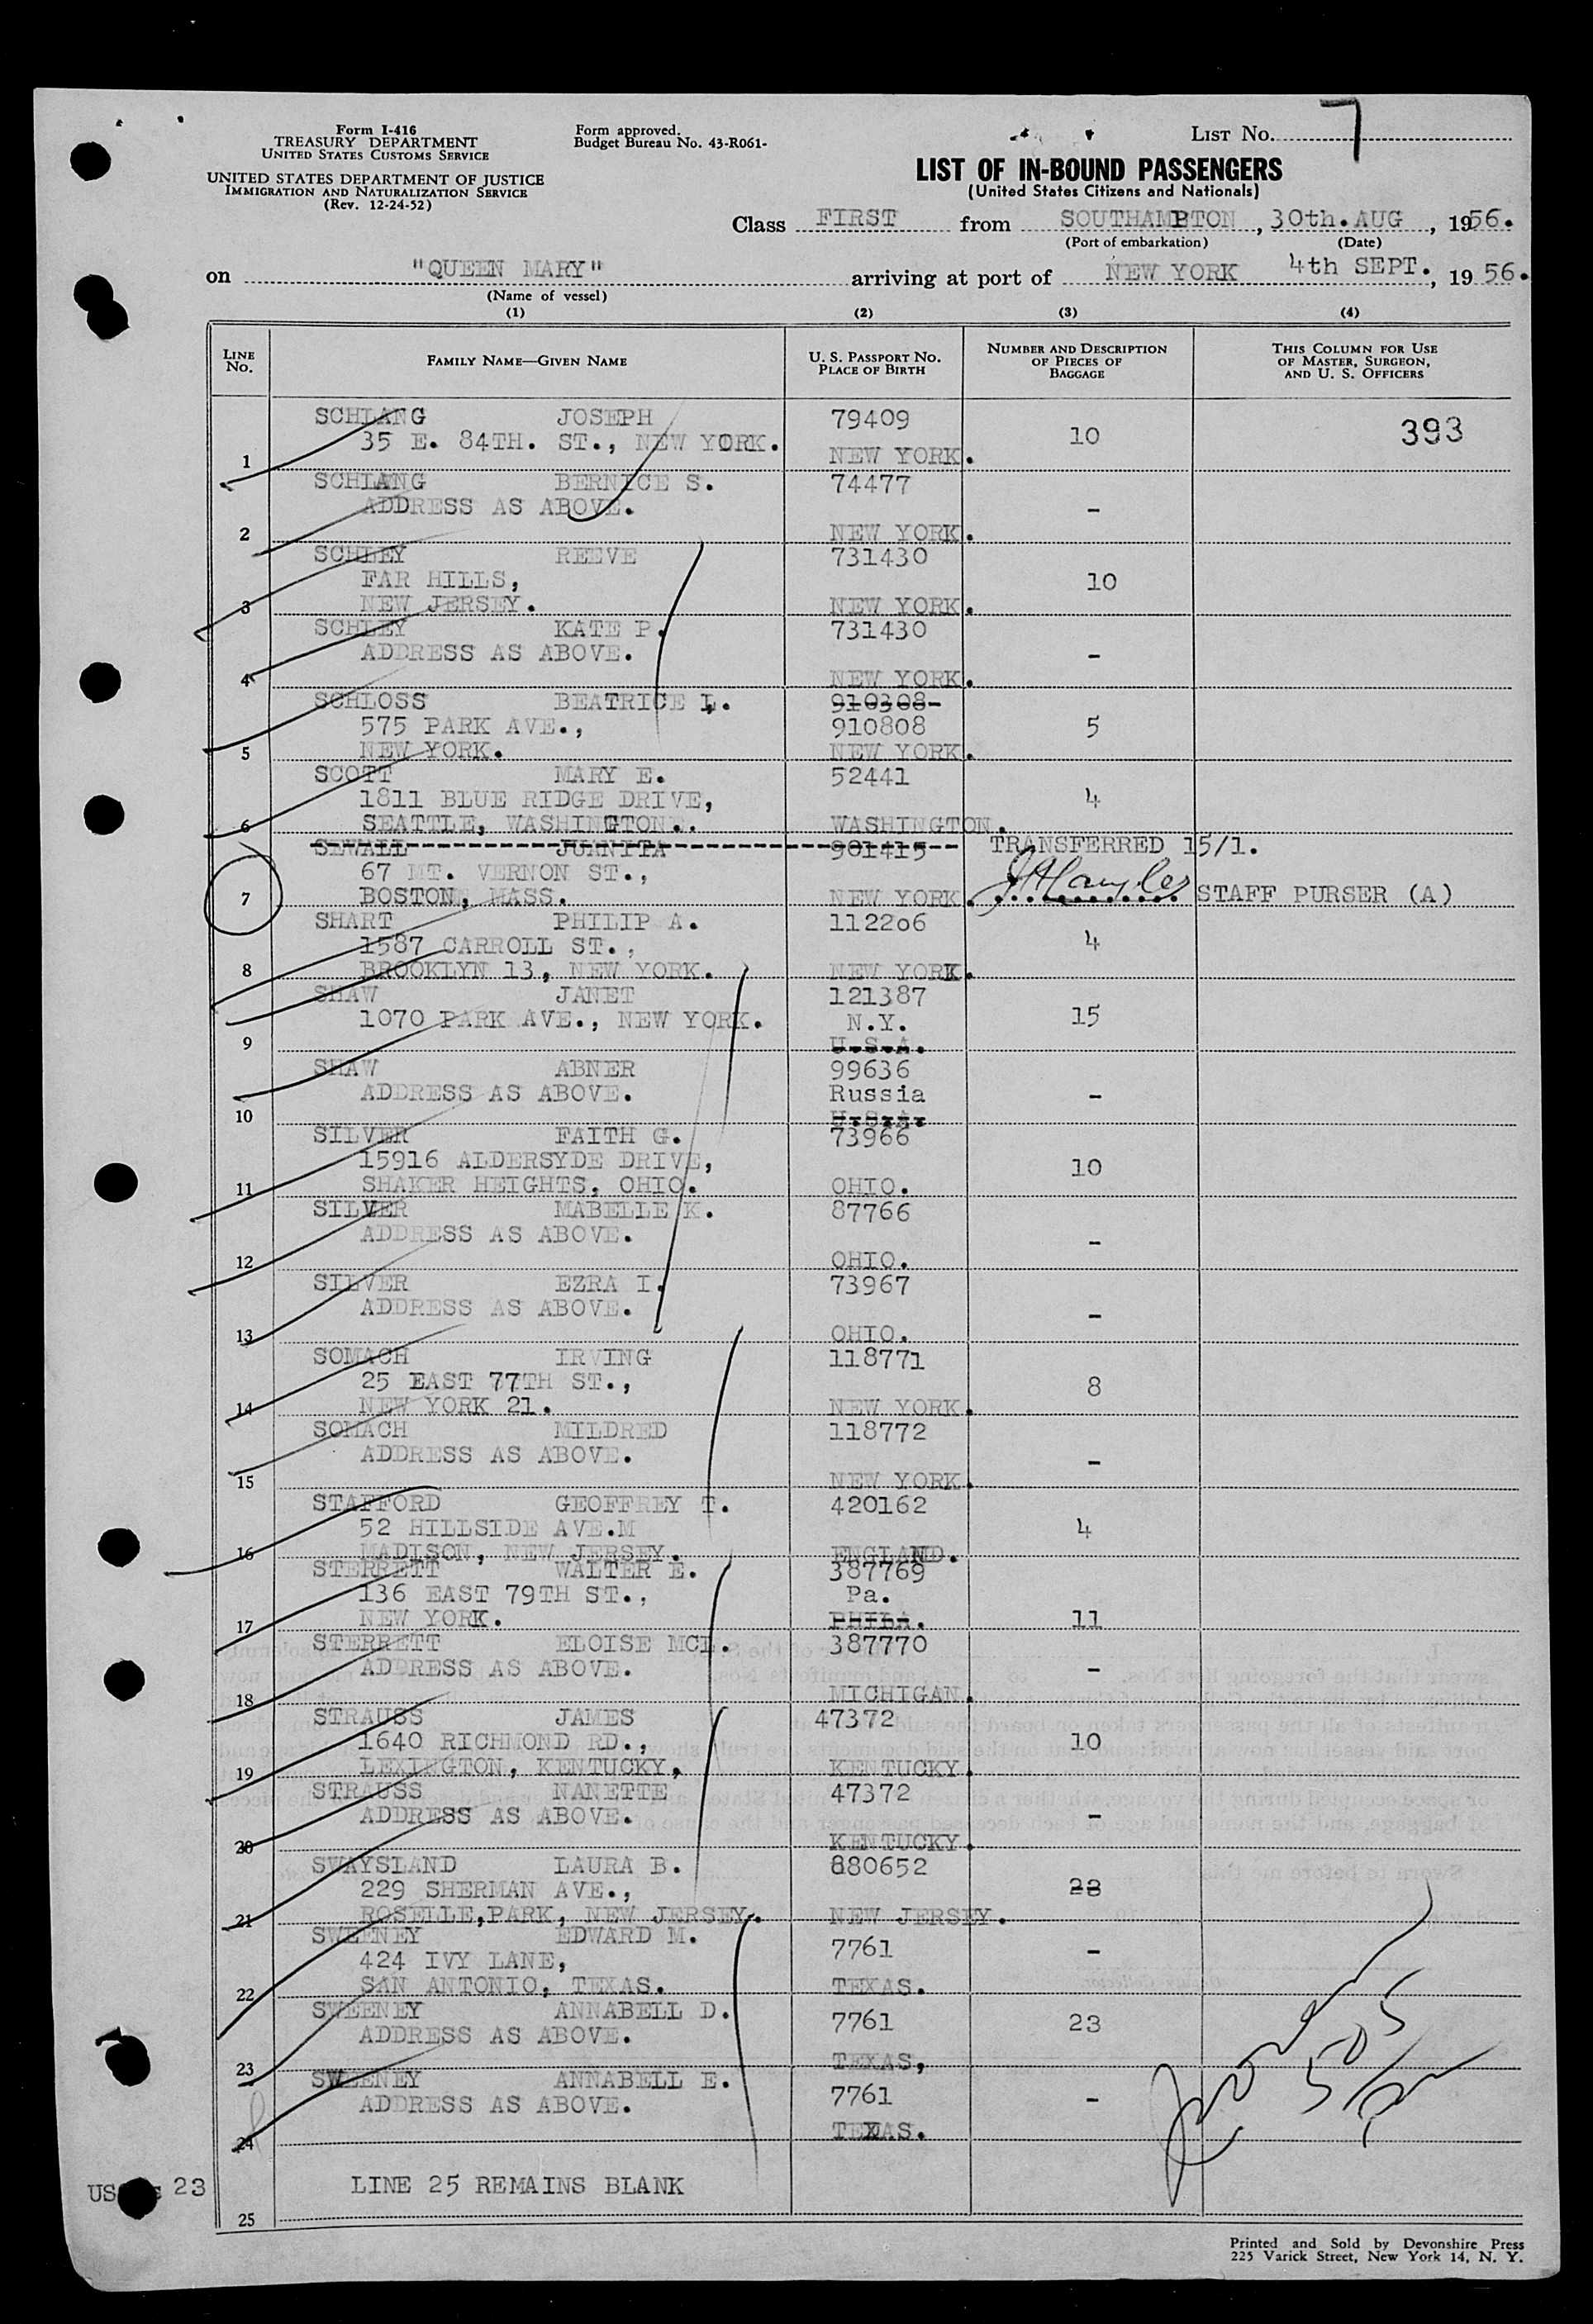 Form I-416
TREASURY DEPARTMENT
UNITED STATES CUSTOMS SERVICE
UNITED STATES DEPARTMENT OF JUSTICE
IMMIGRATION AND NATURALIZATION SERVICE
(Rev. 12-24-52)
Form approved.
Budget Bureau No. 43-R061-
LIST No. 7
LIST OF IN-BOUND PASSENGERS
(United States Citizens and Nationals)
Class FIRST from SOUTHAMPTON, 30th. AUG, 1956.
(Port of embarkation) (Date)
on "QUEEN MARY" arriving at port of NEW YORK 4th SEPT., 1956.
(Name of vessel)
(1) (2) (3) (4)
LINE No. FAMILY NAME—GIVEN NAME U. S. PASSPORT No. PLACE OF BIRTH NUMBER AND DESCRIPTION OF PIECES OF BAGGAGE THIS COLUMN FOR USE OF MASTER, SURGEON, AND U. S. OFFICERS
SCHLANG JOSEPH 79409
35 E. 84TH. ST., NEW YORK. 10 393
1 NEW YORK.
SCHLANG BERNICE S. 74477
ADDRESS AS ABOVE. -
2 NEW YORK.
SCHLEY REEVE 731430
FAR HILLS, 10
3 NEW JERSEY. NEW YORK.
SCHLEY KATE P. 731430
ADDRESS AS ABOVE. -
4 NEW YORK.
SCHLOSS BEATRICE L. 910308-
575 PARK AVE., 910808 5
5 NEW YORK. NEW YORK.
SCOTT MARY E. 52441
1811 BLUE RIDGE DRIVE, 4
6 SEATTLE, WASHINGTON. WASHINGTON.
SEWALL JUANITA 901415 TRANSFERRED 15/1.
67 MT. VERNON ST.,
7 BOSTON, MASS. NEW YORK. STAFF PURSER (A)
SHART PHILIP A. 112206
1587 CARROLL ST., 4
8 BROOKLYN 13, NEW YORK. NEW YORK.
SHAW JANET 121387
1070 PARK AVE., NEW YORK. N.Y. 15
9 U.S.A.
SHAW ABNER 99636
ADDRESS AS ABOVE. Russia -
10 U.S.A.
SILVER FAITH G. 73966
15916 ALDERSYDE DRIVE, 10
11 SHAKER HEIGHTS, OHIO. OHIO.
SILVER MABELLE K. 87766
ADDRESS AS ABOVE. -
12 OHIO.
SILVER EZRA I. 73967
ADDRESS AS ABOVE. -
13 OHIO.
SOMACH IRVING 118771
25 EAST 77TH ST., 8
14 NEW YORK 21. NEW YORK.
SOMACH MILDRED 118772
ADDRESS AS ABOVE. -
15 NEW YORK.
STAFFORD GEOFFREY T. 420162
52 HILLSIDE AVE.M 4
16 MADISON, NEW JERSEY. ENGLAND.
STERRETT WALTER E. 387769
136 EAST 79TH ST., Pa.
17 NEW YORK. PHILA. 11
STERRETT ELOISE MCL. 387770
ADDRESS AS ABOVE. -
18 MICHIGAN.
STRAUSS JAMES 47372
1640 RICHMOND RD., 10
19 LEXINGTON, KENTUCKY, KENTUCKY.
STRAUSS NANETTE 47372
ADDRESS AS ABOVE. -
20 KENTUCKY.
SWAYSLAND LAURA B. 880652
229 SHERMAN AVE., 28
21 ROSELLE,PARK, NEW JERSEY. NEW JERSEY.
SWEENEY EDWARD M. 7761 -
424 IVY LANE,
22 SAN ANTONIO, TEXAS. TEXAS.
SWEENEY ANNABELL D. 7761 23
ADDRESS AS ABOVE.
23 TEXAS,
SWEENEY ANNABELL E. 7761 -
ADDRESS AS ABOVE.
24 TEXAS.
LINE 25 REMAINS BLANK
23
25
Printed and Sold by Devonshire Press
225 Varick Street, New York 14, N. Y.